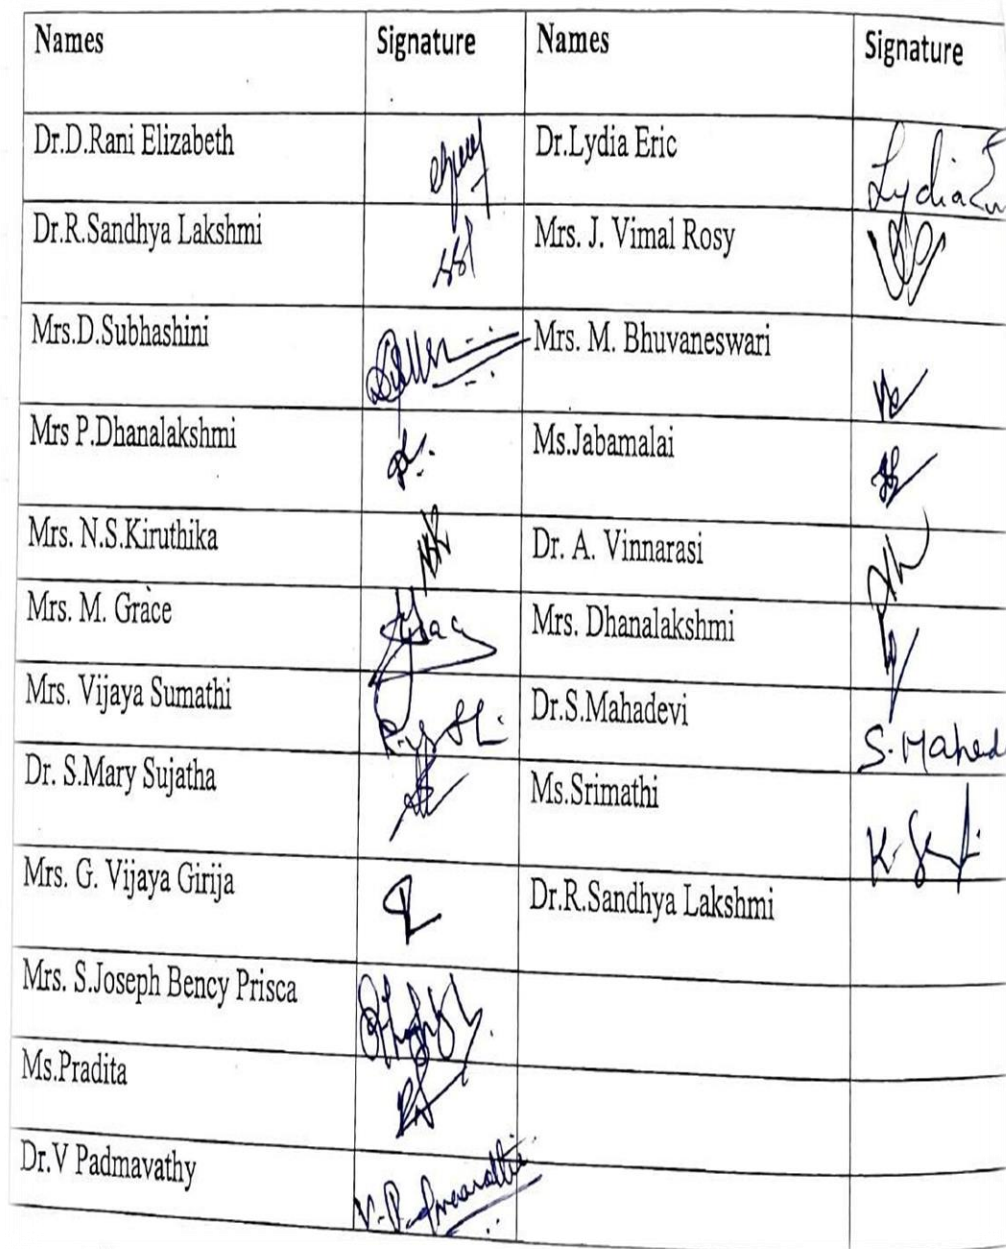 Names Signature Names Signature
Dr.D.Rani Elizabeth Dr.Lydia Eric Lydia
Dr.R.Sandhya Lakshmi Mrs. J. Vimal Rosy
Mrs.D.Subhashini Mrs. M. Bhuvaneswari
Mrs P.Dhanalakshmi Ms.Jabamalai
Mrs. N.S.Kiruthika Dr. A. Vinnarasi
Mrs. M. Grace Mrs. Dhanalakshmi
Mrs. Vijaya Sumathi Dr.S.Mahadevi S.Mahad
Dr. S.Mary Sujatha Ms.Srimathi
Mrs. G. Vijaya Girija Dr.R.Sandhya Lakshmi
Mrs. S.Joseph Bency Prisca
Ms.Pradita
Dr.V Padmavathy